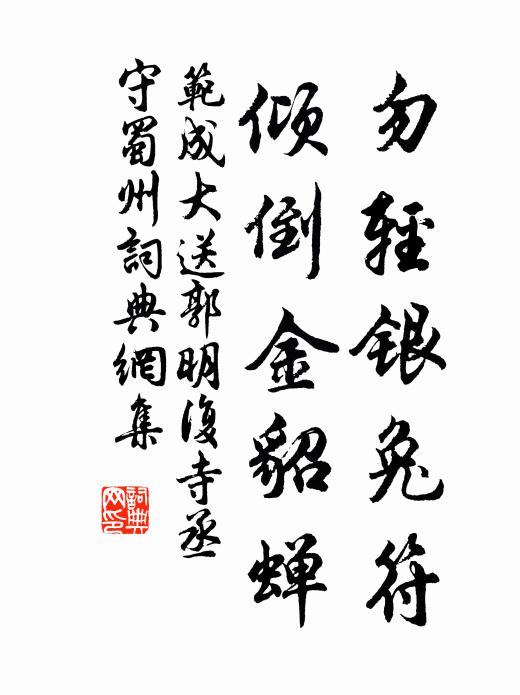 勿輕銀兔符
傾倒金貂蟬
範成大送郭明復寺丞
守蜀州詞典網集
詞典
网印